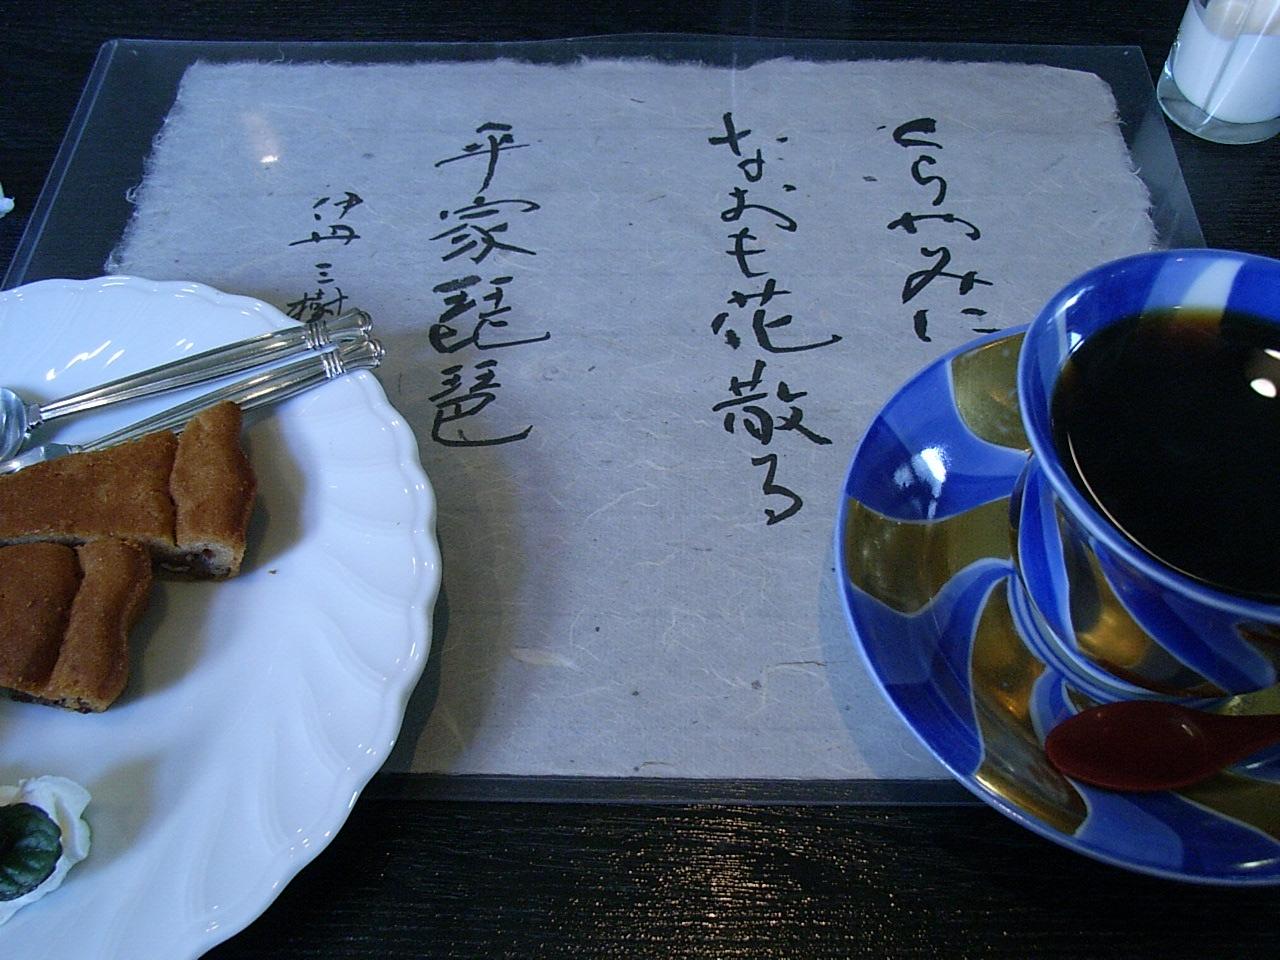 くらやみに
なおも花散る
平家琵琶
伊丹三樹